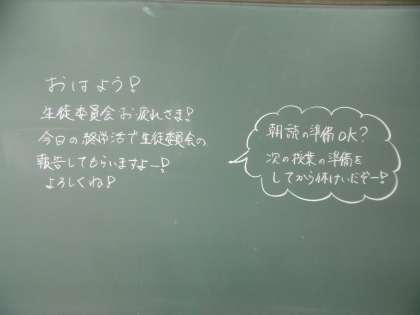 おはよう!
生徒委員会お疲れさま!
今日の終学活で生徒委員会の
報告してもらいますよー!
よろしくね!
朝読の準備OK?
次の授業の準備を
してから休けいだぞー!